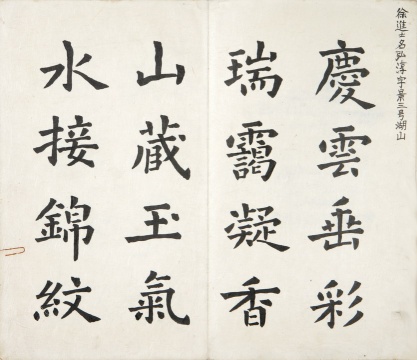 徐進士名弘淳字景三号湖山
慶雲垂彩
瑞靄凝香
山蔵玉氣
水接錦紋